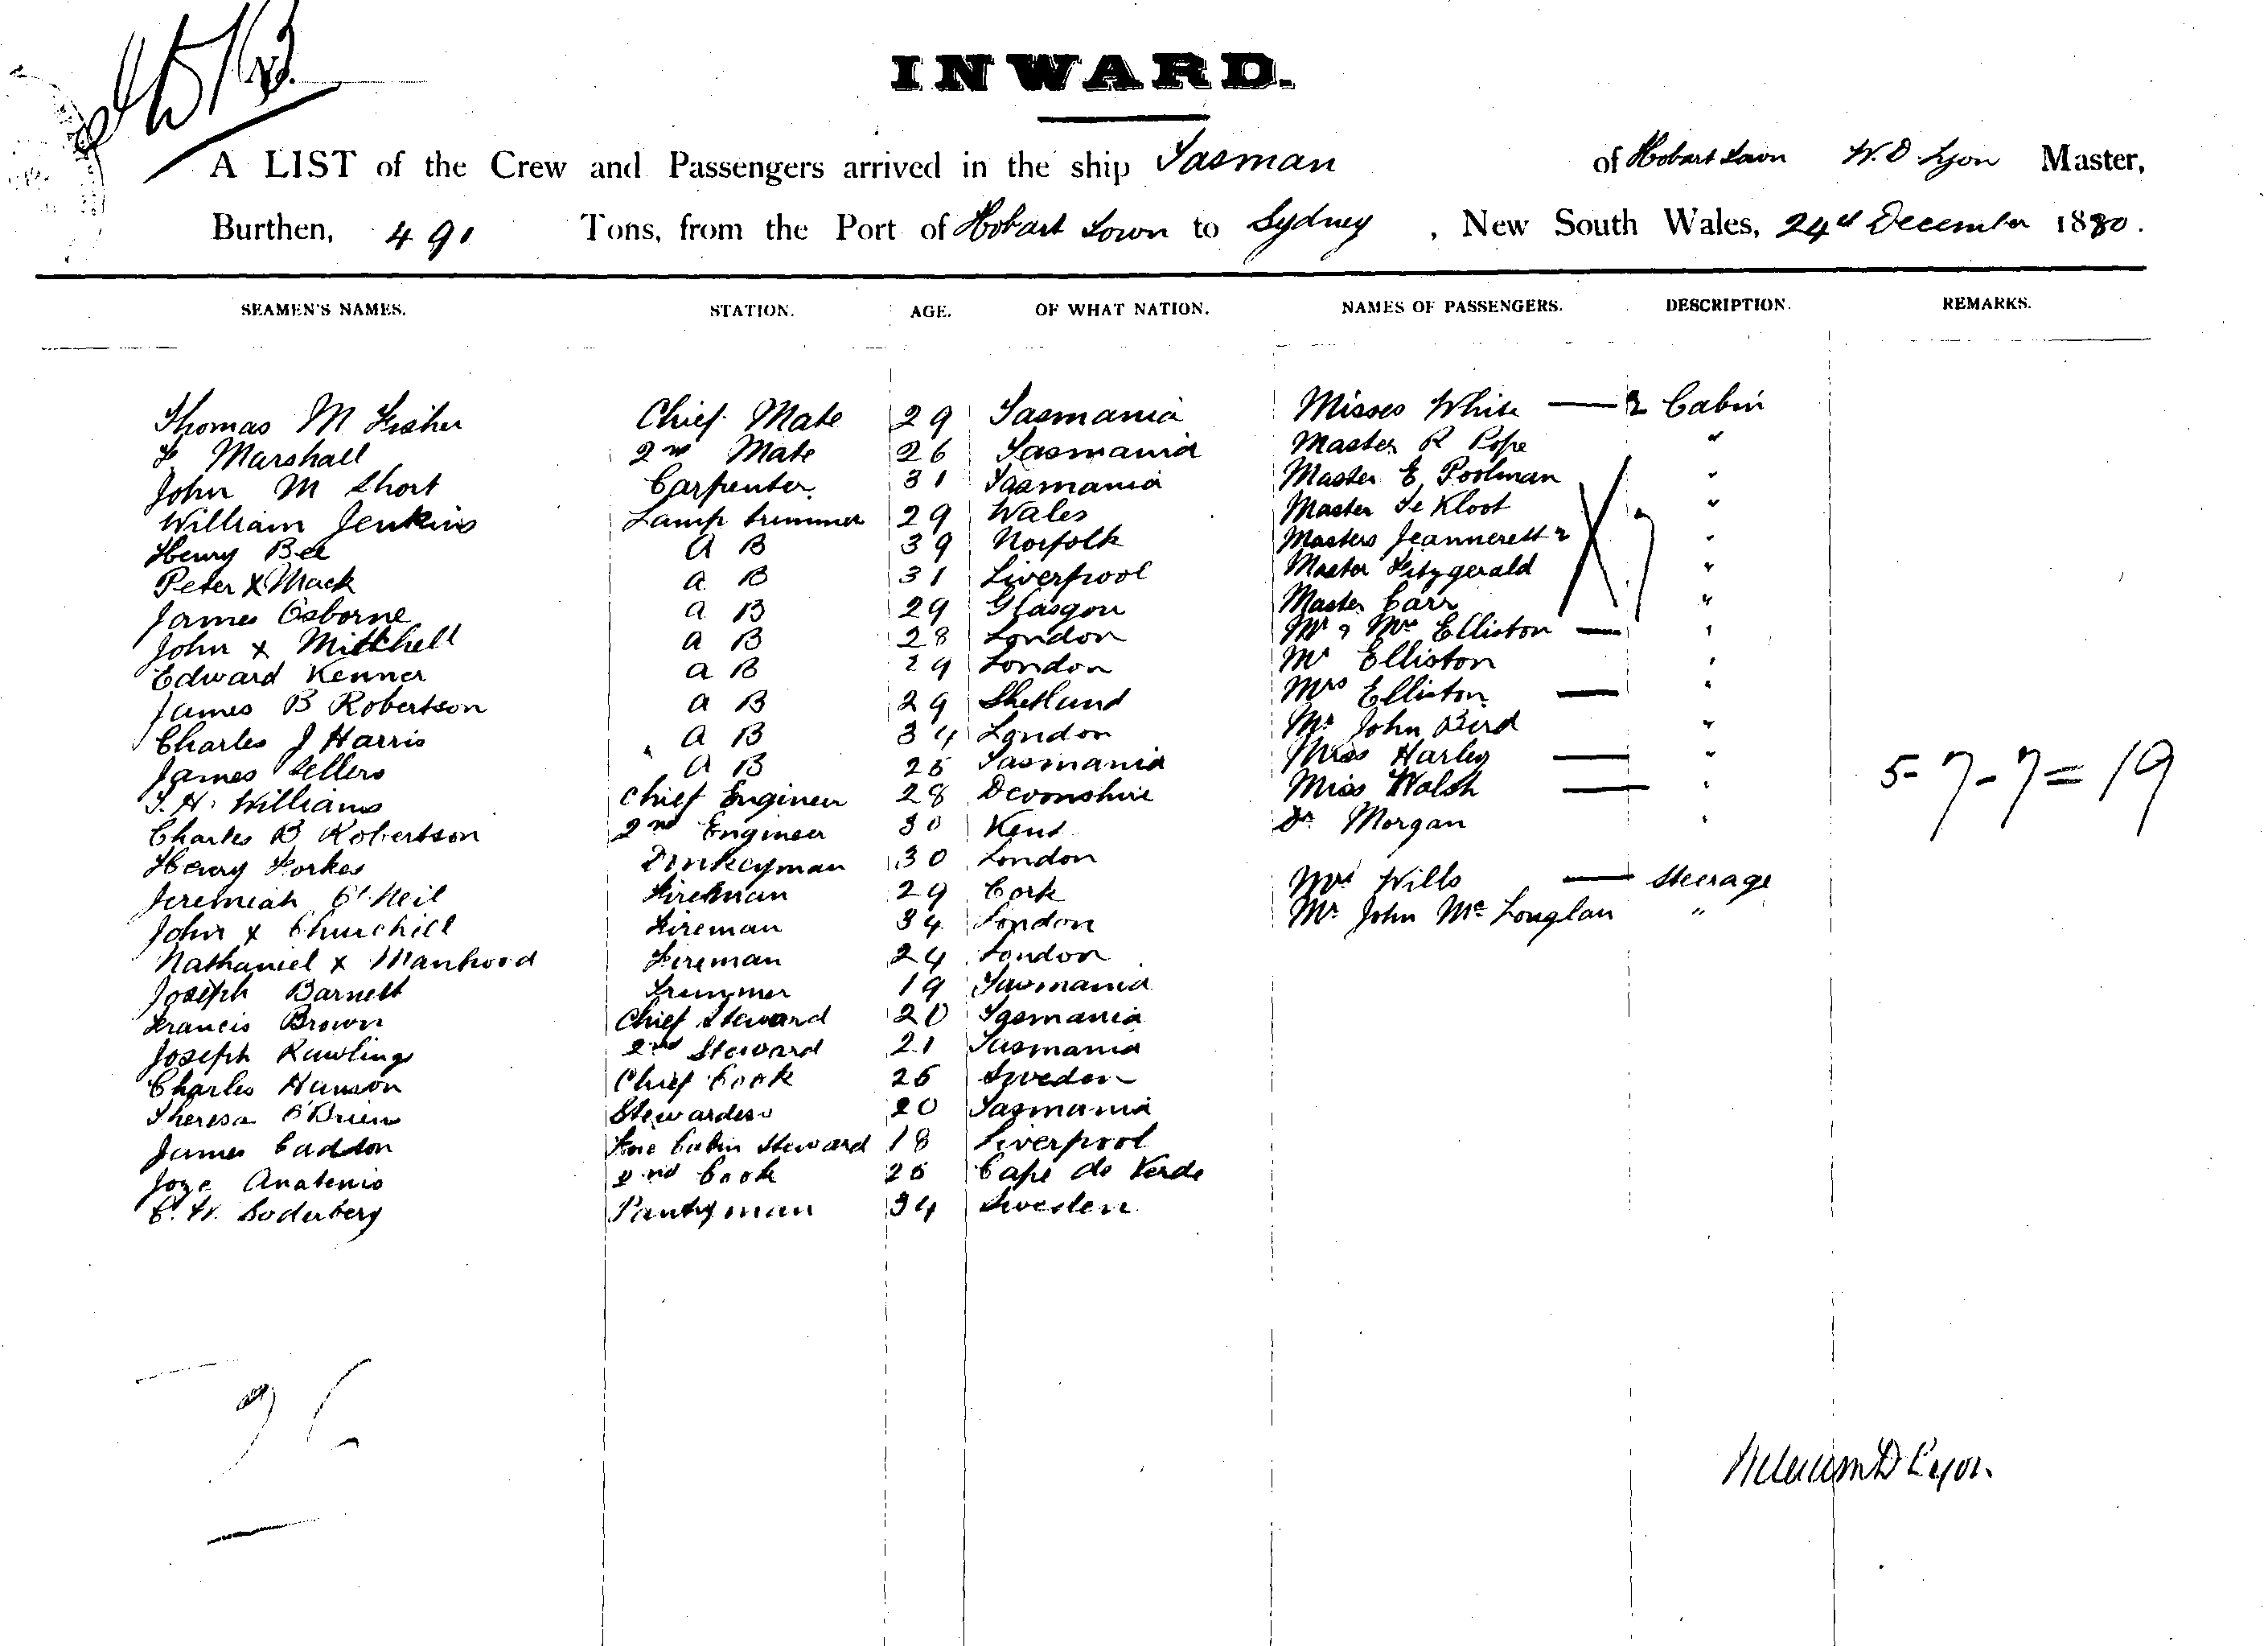 INWARD.
A LIST of the Crew and Passengers arrived in the ship Tasman of Hobart Town W. D Lyon Master,
Burthen, 491 Tons, from the Port of Hobart Town to Sydney, New South Wales, 24th December 1880.
SEAMEN'S NAMES. STATION. AGE. OF WHAT NATION. NAMES OF PASSENGERS. DESCRIPTION. REMARKS.
Thomas M Fisher Chief Mate 29 Tasmania Misses White — 2 Cabin
F Marshall 2nd Mate 26 Tasmania Master R Pope "
John M Short Carpenter 31 Tasmania Master E Poolman "
William Jenkins Lamp trimmer 29 Wales Master Te Kloot "
Henry Bee A B 39 Norfolk Masters Jeannerett 2 "
Peter X Mack A B 31 Liverpool Master Fitzgerald "
James Osborne A B 29 Glasgow Master Carr "
John X Mitchell A B 28 London Mr & Mrs Elliston — "
Edward Kenner A B 29 London Mr Elliston "
James B Robertson A B 29 Shetland Mrs Elliston — "
Charles J Harris A B 34 London Mr John Bird "
James Sellers A B 25 Tasmania Miss Harley — "
T. H. Williams Chief Engineer 28 Devonshire Miss Walsh — " 5-7-7=19
Charles B Robertson 2nd Engineer 30 Kent Dr Morgan "
Henry Forkes Donkeyman 30 London
Jeremiah O'Neil Fireman 29 Cork Mrs Wills — Steerage
John X Churchill Fireman 34 London Mr John Mc Louglan "
Nathaniel X Manhood Fireman 24 London
Joseph Barnett Trimmer 19 Tasmania
Francis Brown Chief Steward 20 Tasmania
Joseph Rawlings 2nd Steward 21 Tasmania
Charles Hanson Chief Cook 25 Sweden
Theresa O'Brien Stewardess 20 Tasmania
James Caddon Fore Cabin Steward 18 Liverpool
Joze Anatenio 2nd Cook 25 Cape de Verde
C. W. Soderberg Pantryman 34 Sweden
William D Lyon.